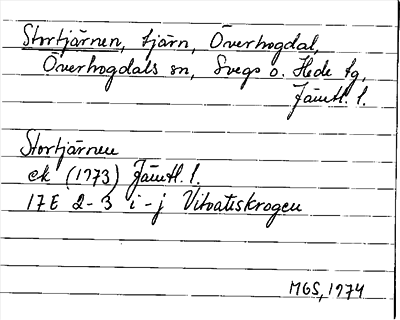 Stortjärnen, tjärn, Överhogdal,
Överhogdals sn, Svegs o. Hede tg,
Jämtl. l.
Stortjärnen
ek (1973) Jämtl. l.
17E 2-3 i-j Vitvattskrogen
MGS, 1974